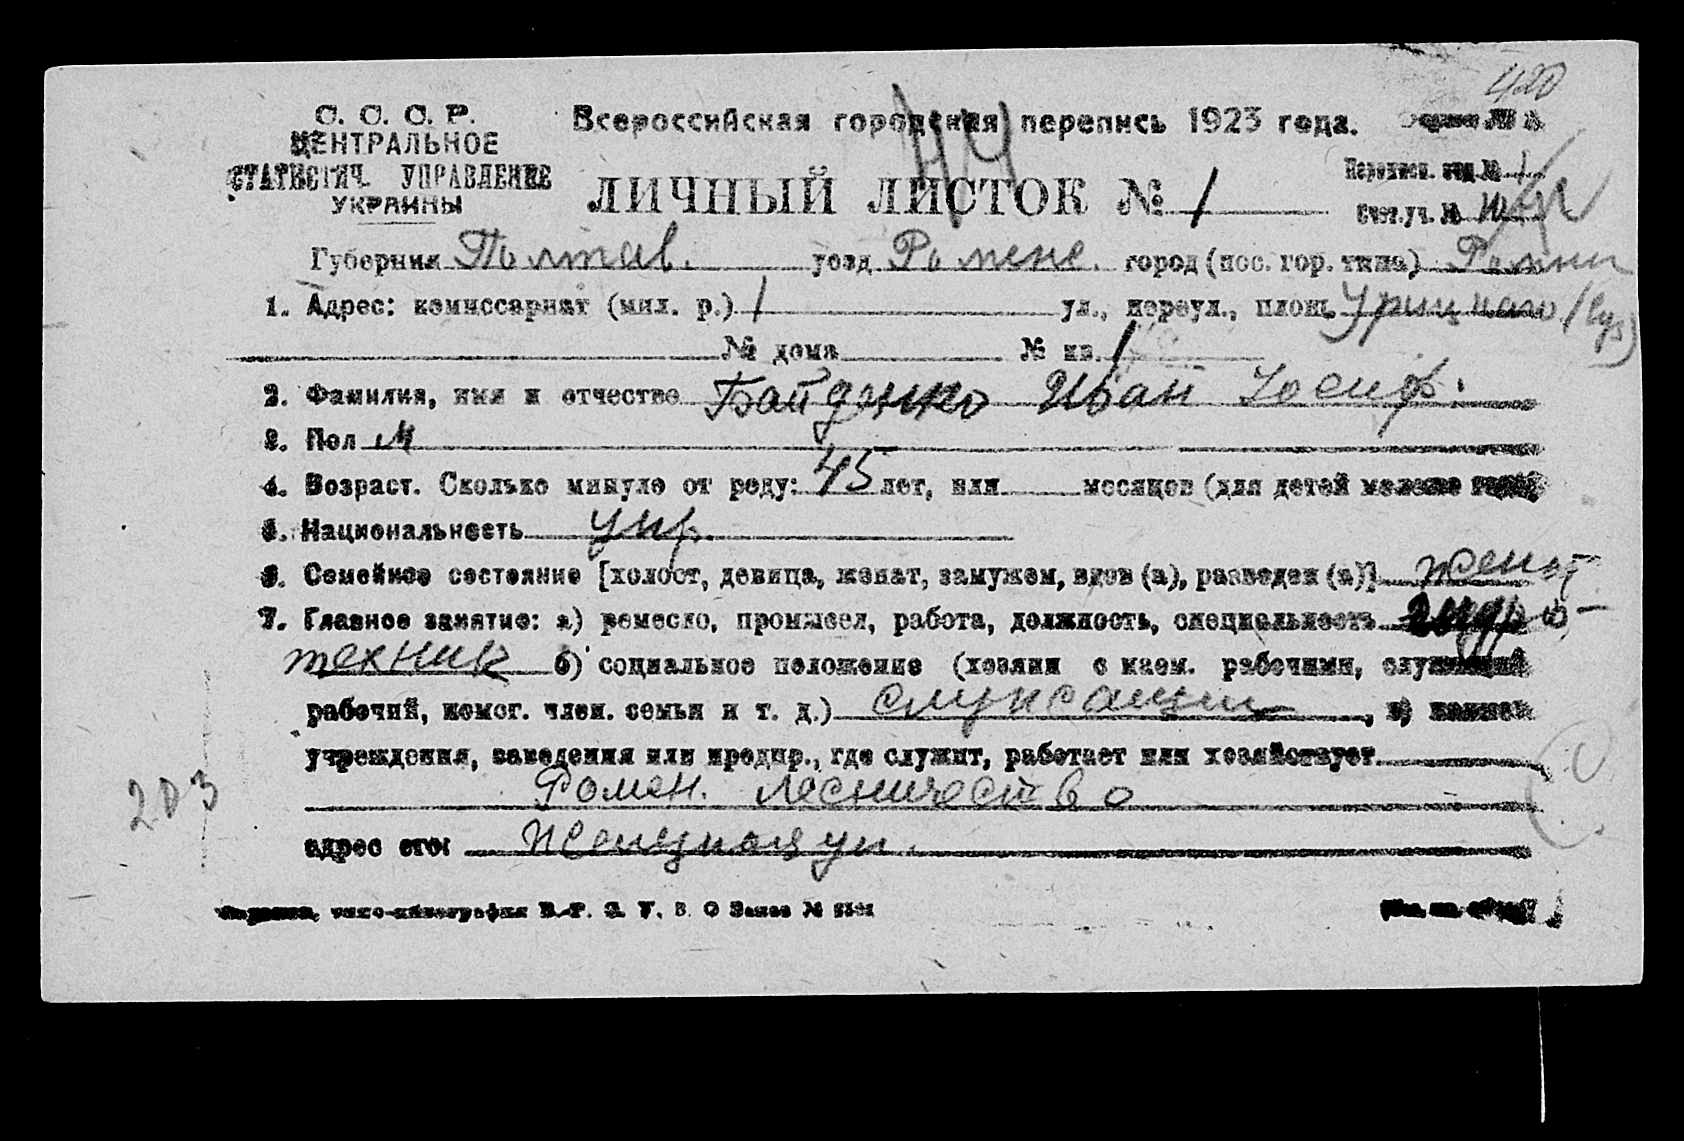 420
С. С. С. Р.
ЦЕНТРАЛЬНОЕ
СТАТИСТИЧ. УПРАВЛЕНИЕ
УКРАИНЫ
Всероссийская городская перепись 1923 года.
ЛИЧНЫЙ ЛИСТОК № 1
Переписн. отд. № 1
Счет. уч. №
Губерния Полтав. уезд Роменс. город (пос. гор. типа) Ромны
1. Адрес: комиссариат (мил. р.) 1 ул., переул., площ. Урицкаго
№ дома № кв. 1
2. Фамилия, имя и отчество Байденко Иван Юсиф.
3. Пол М
4. Возраст. Сколько минуло от роду: 45 лет, или месяцев (для детей моложе
5. Национальность укр.
6. Семейное состояние [холост, девица, женат, замужем, вдов (а), разведен (а)] женат
7. Главное занятие: а) ремесло, промысел, работа, должность, специальность гидро-
техник б) социальное положение (хозяин с наем. рабочими, служащий
рабочий, помог. член. семьи и т. д.) служащий, в)
учреждения, заведения или предпр., где служит, работает или хозяйствует
Ромен. Лесничество
203
адрес его: ул.